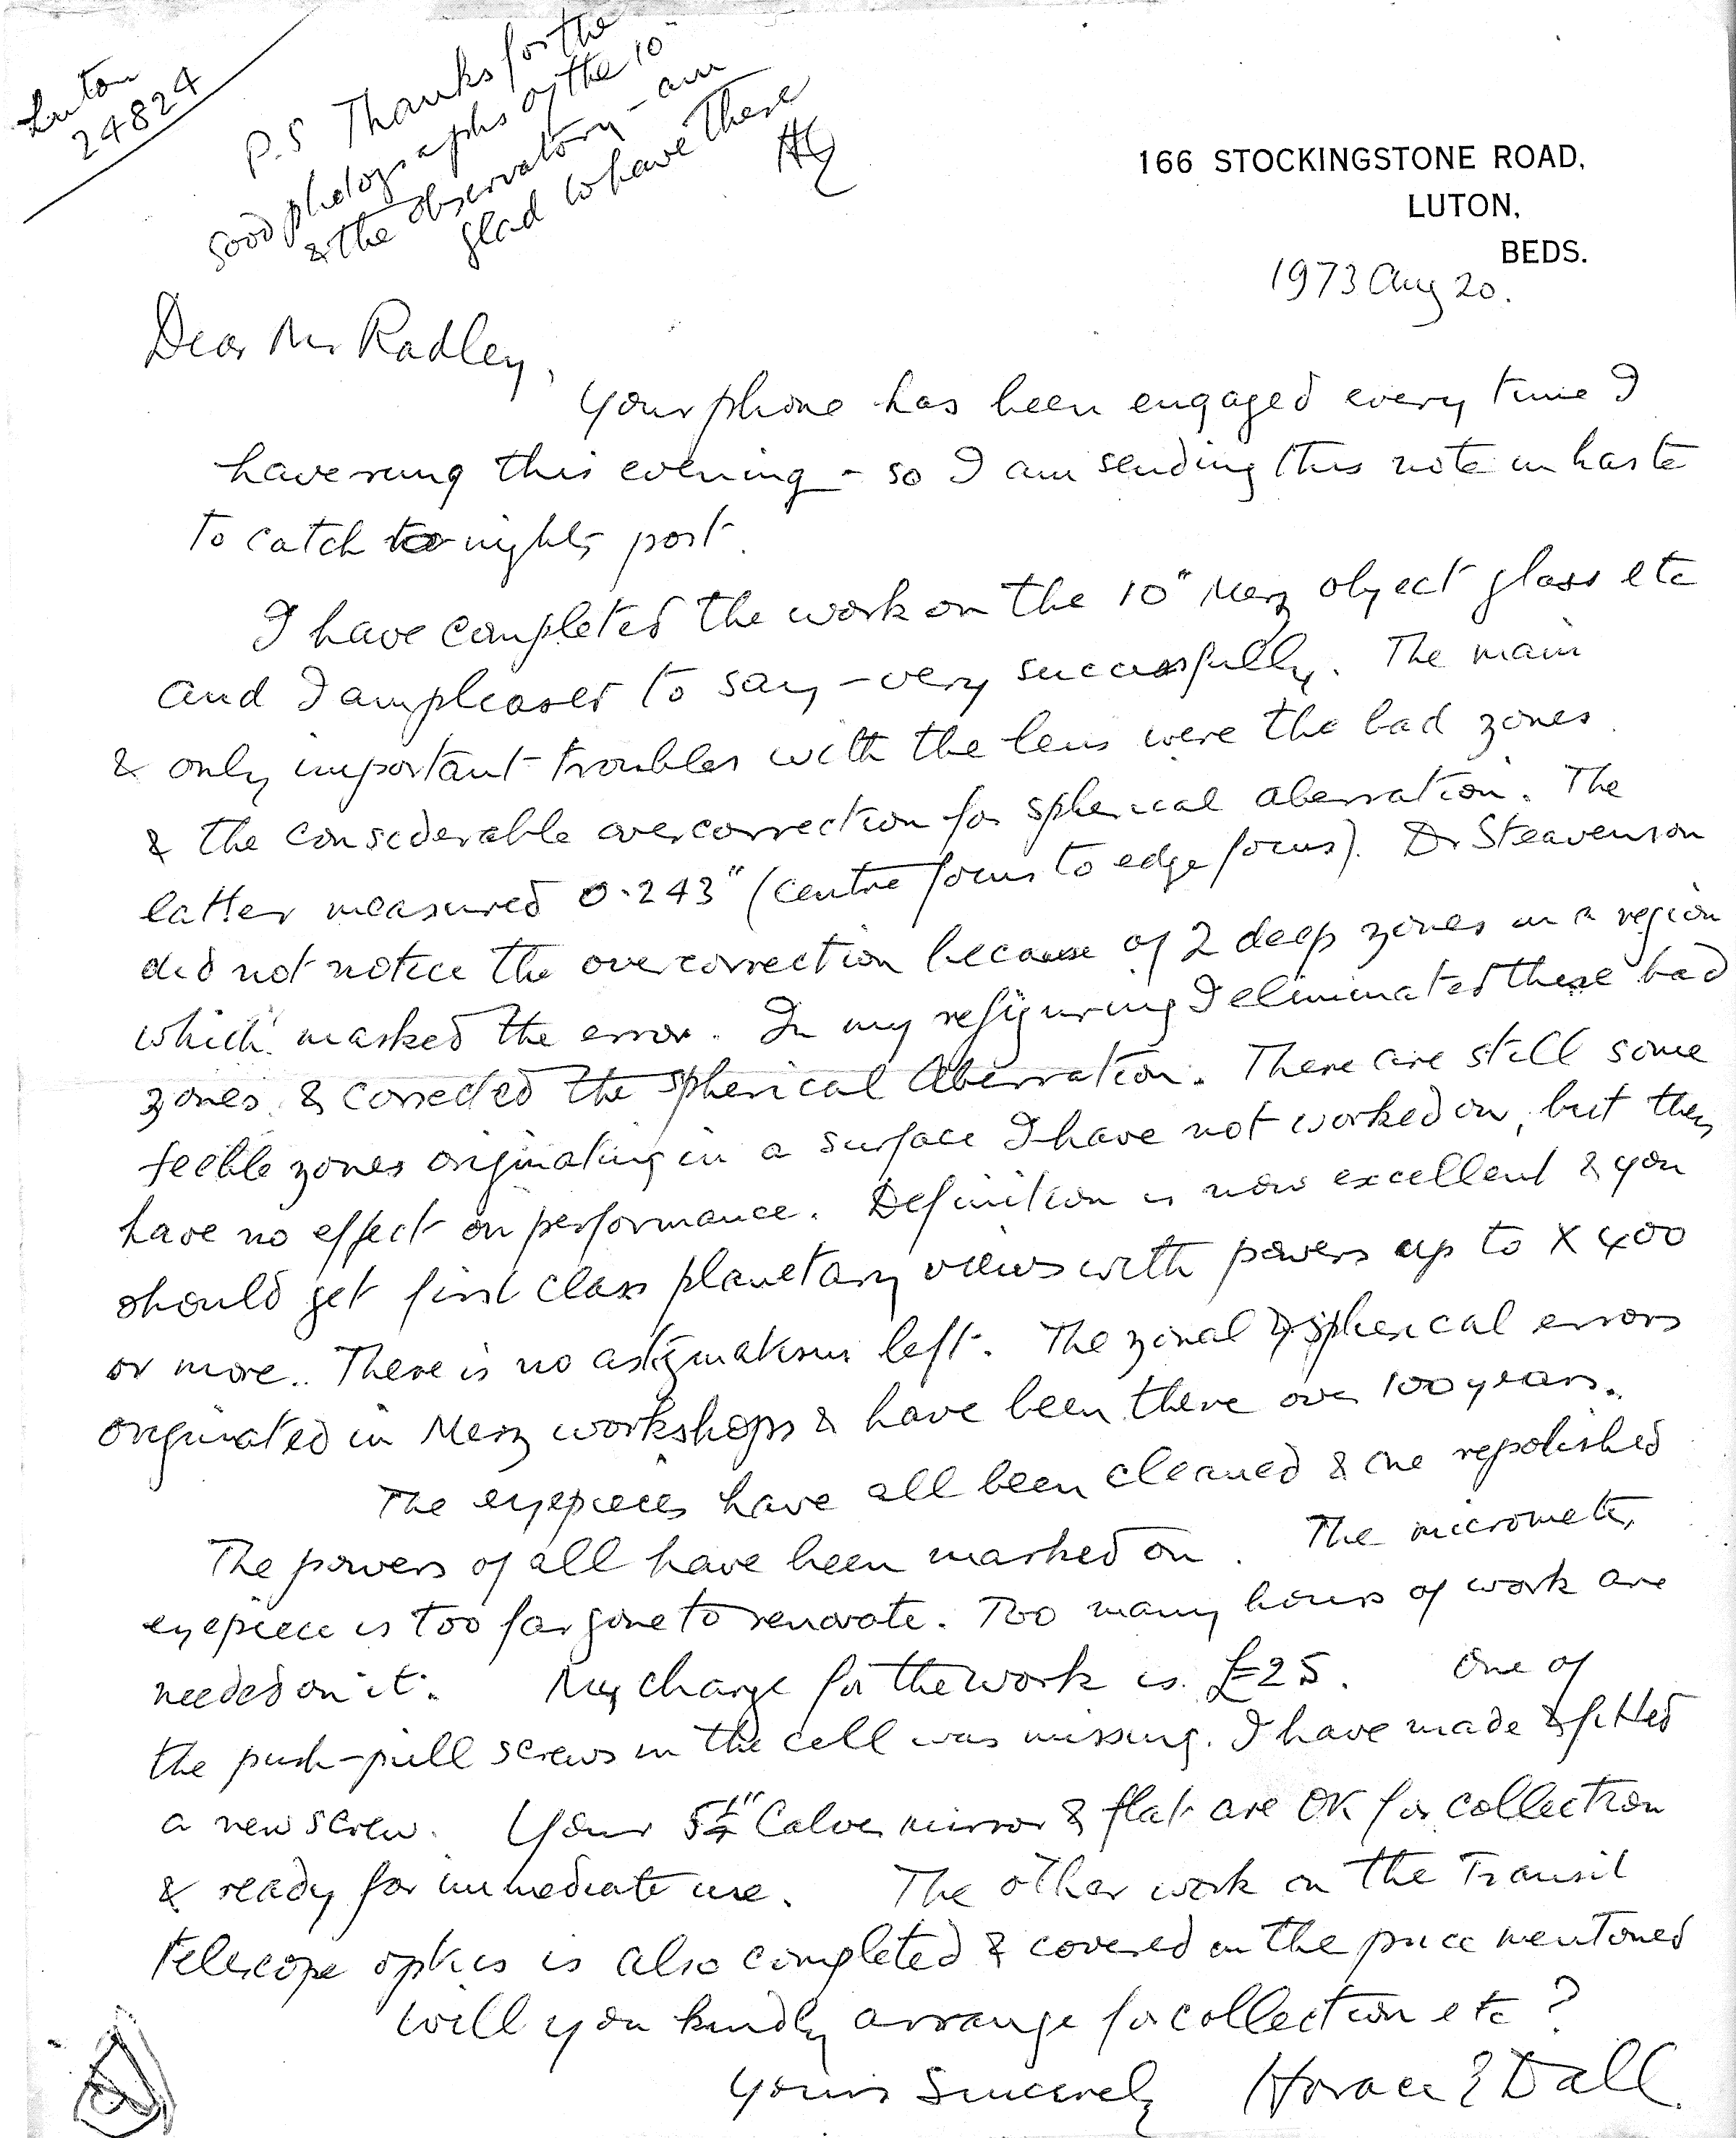 Luton
24824
P.S Thanks for the
good photographs of the 10"
& the observatory - am
glad to have these
166 STOCKINGSTONE ROAD,
LUTON,
BEDS.
1973 Aug 20.
Dear Mr Radley,
Your phone has been engaged every time I
have rung this evening - so I am sending this note in haste
to catch to-nights post.
I have completed the work on the 10" Merz object glass etc
and I am pleased to say - very successfully. The main
& only important troubles with the lens were the bad zones
& the considerable overcorrection for spherical aberration. The
latter measured 0.243" (centre focus to edge focus). Dr Steavenson
did not notice the overcorrection because of 2 deep zones in a region
which masked the error. In my refiguring I eliminated these bad
zones & corrected the spherical aberration. There are still some
feeble zones originating in a surface I have not worked on, but they
have no effect on performance. Definition is now excellent & you
should get first class planetary views with powers up to X 400
or more. There is no astigmatism left. The zonal & spherical errors
originated in Merz workshops & have been there over 100 years.
The eyepieces have all been cleaned & one repolished
The powers of all have been marked on. The micrometer
eyepiece is too far gone to renovate. Too many hours of work are
needed on it. My charge for the work is £25. One of
the push-pull screws in the cell was missing. I have made & fitted
a new screw. Your 5¼" Calver mirror & flat are OK for collection
& ready for immediate use. The other work on the Transit
telescope optics is also completed & covered in the price mentioned
Will you kindly arrange for collection etc?
Yours Sincerely Horace E Dall.